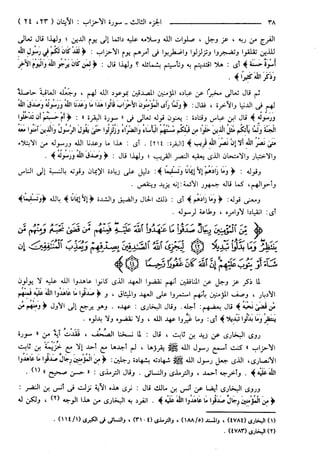 ٣٨ الجزء الثالث - سورة الأحزاب : الآيتان (٢٣، ٢٤)
الفرج من ربه ، عز وجل ، صلوات الله وسلامه عليه دائما إلى يوم الدين ؛ ولهذا قال تعالى
للذين تقلقوا وتضجروا وتزلزلوا واضطربوا في أمرهم يوم الأحزاب : ﴿ لَقَدْ كَانَ لَكُمْ فِي رَسُولِ اللَّهِ
أُسْوَةٌ حَسَنَةٌ ﴾ أي : هلا اقتديتم به وتأسيتم بشمائله ؟ ولهذا قال : ﴿ لِمَنْ كَانَ يَرْجُو اللَّهَ وَالْيَوْمَ الْآخِرَ
وَذَكَرَ اللَّهَ كَثِيرًا ﴾ .
ثم قال تعالى مخبرا عن عباده المؤمنين المصدقين بموعود الله لهم ، وجعله العاقبة حاصلة
لهم في الدنيا والآخرة ، فقال : ﴿ وَلَمَّا رَأَى الْمُؤْمِنُونَ الْأَحْزَابَ قَالُوا هَذَا مَا وَعَدَنَا اللَّهُ وَرَسُولُهُ وَصَدَقَ اللَّهُ
وَرَسُولُهُ ﴾ قال ابن عباس وقتادة : يعنون قوله تعالى في « سورة البقرة » : ﴿ أَمْ حَسِبْتُمْ أَنْ تَدْخُلُوا
الْجَنَّةَ وَلَمَّا يَأْتِكُمْ مَثَلُ الَّذِينَ خَلَوْا مِنْ قَبْلِكُمْ مَسَّتْهُمُ الْبَأْسَاءُ وَالضَّرَّاءُ وَزُلْزِلُوا حَتَّى يَقُولَ الرَّسُولُ وَالَّذِينَ آمَنُوا مَعَهُ
مَتَى نَصْرُ اللَّهِ أَلَا إِنَّ نَصْرَ اللَّهِ قَرِيبٌ ﴾ [البقرة: ٢١٤] . أي : هذا ما وعدنا الله ورسوله من الابتلاء
والاختبار والامتحان الذي يعقبه النصر القريب ؛ ولهذا قال : ﴿ وَصَدَقَ اللَّهُ وَرَسُولُهُ ﴾ .
وقوله : ﴿ وَمَا زَادَهُمْ إِلَّا إِيمَانًا وَتَسْلِيمًا ﴾ : دليل على زيادة الإيمان وقوته بالنسبة إلى الناس
وأحوالهم، كما قاله جمهور الأئمة: إنه يزيد وينقص .
ومعنى قوله: ﴿ وَمَا زَادَهُمْ ﴾ أي : ذلك الحال والضيق والشدة ﴿ إِلَّا إِيمَانًا ﴾ بالله ﴿ وَتَسْلِيمًا ﴾
أي: انقيادا لأوامره ، وطاعة لرسوله .
﴿ مِنَ الْمُؤْمِنِينَ رِجَالٌ صَدَقُوا مَا عَاهَدُوا اللَّهَ عَلَيْهِ فَمِنْهُمْ مَنْ قَضَى نَحْبَهُ وَمِنْهُمْ مَنْ
يَنْتَظِرُ وَمَا بَدَّلُوا تَبْدِيلًا ۝ لِيَجْزِيَ اللَّهُ الصَّادِقِينَ بِصِدْقِهِمْ وَيُعَذِّبَ الْمُنَافِقِينَ إِنْ
شَاءَ أَوْ يَتُوبَ عَلَيْهِمْ إِنَّ اللَّهَ كَانَ غَفُورًا رَحِيمًا ۝ ﴾
لما ذكر عز وجل عن المنافقين أنهم نقضوا العهد الذي كانوا عاهدوا الله عليه لا يولون
الأدبار ، وصف المؤمنين بأنهم استمروا على العهد والميثاق ، و ﴿ صَدَقُوا مَا عَاهَدُوا اللَّهَ عَلَيْهِ فَمِنْهُمْ
مَنْ قَضَى نَحْبَهُ ﴾ قال بعضهم: أجله. وقال البخاري : عهده. وهو يرجع إلى الأول ﴿ وَمِنْهُمْ مَنْ
يَنْتَظِرُ وَمَا بَدَّلُوا تَبْدِيلًا ﴾ أي: وما غيروا عهد الله ، ولا نقضوه ولا بدلوه .
روى البخاري عن زيد بن ثابت ، قال : لما نسخنا الصحف ، فقدت آية من « سورة
الأحزاب » كنت أسمع رسول الله ﷺ يقرؤها ، لم أجدها مع أحد إلا مع خزيمة بن ثابت
الأنصاري، الذي جعل رسول الله ﷺ شهادته بشهادة رجلين: ﴿ مِنَ الْمُؤْمِنِينَ رِجَالٌ صَدَقُوا مَا عَاهَدُوا
اللَّهَ عَلَيْهِ ﴾ . وأخرجه أحمد ، والترمذي والنسائي . وقال الترمذي : « حسن صحيح » (١) .
وروى البخاري أيضا عن أنس بن مالك قال : نرى هذه الآية نزلت في أنس بن النضر :
﴿ مِنَ الْمُؤْمِنِينَ رِجَالٌ صَدَقُوا مَا عَاهَدُوا اللَّهَ عَلَيْهِ ﴾ . انفرد به البخاري من هذا الوجه (٢) ، ولكن له
(١) البخاري (٤٧٨٤) ، والمسند (١٨٨/٥) ، والترمذي (٣١٠٤) ، والنسائي في الكبرى (١١٤/١) .
(٢) البخاري (٤٧٨٣) .